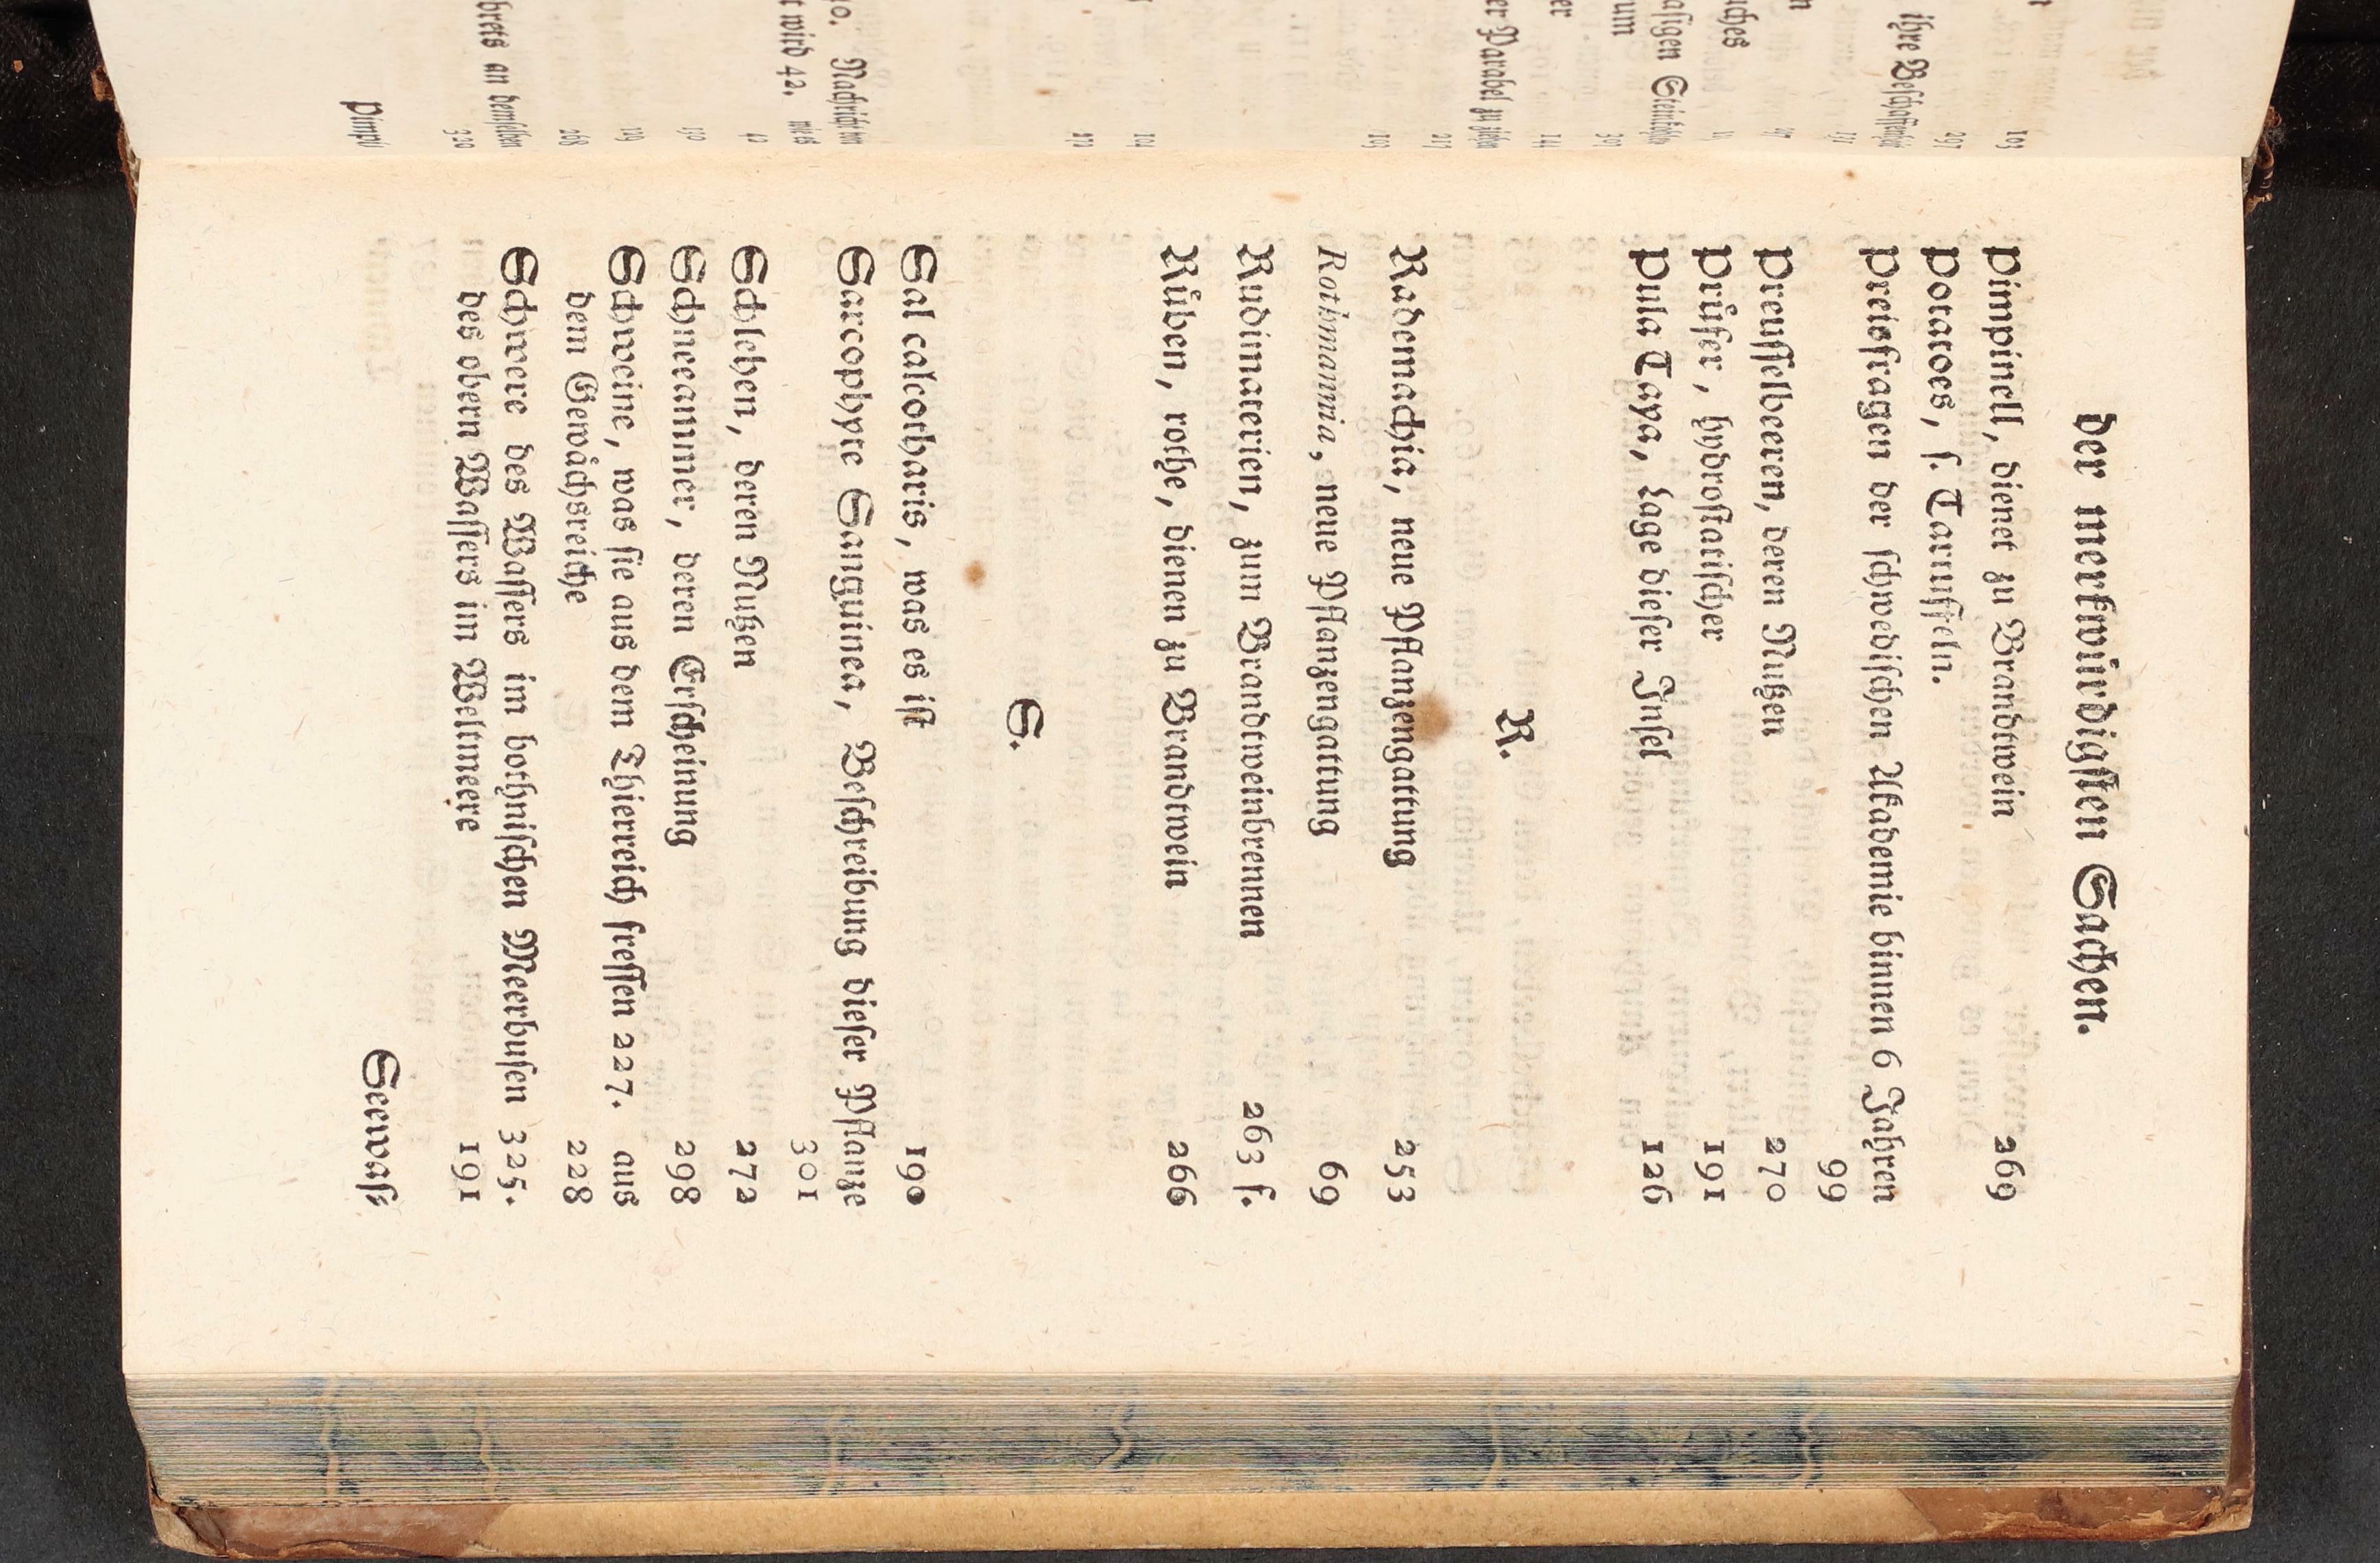 der merkwürdigsten Sachen.
Pimpinell, dienet zu Brandtwein 269
Potatoes, s. Tartuffeln.
Preisfragen der schwedischen Akademie binnen 6 Jahren
99
Preusselbeeren, deren Nutzen 270
Prüfer, hydrostatischer 191
Pula Taya, Lage dieser Insel 126
R.
Rademachia, neue Pflanzengattung 253
Rothmannia, neue Pflanzengattung 69
Rudimaterien, zum Brandtweinbrennen 263 f.
Rüben, rothe, dienen zu Brandtwein 266
S.
Sal calcotharis, was es ist 190
Sarcophyte Sanguinea, Beschreibung dieser Pflanze
301
Schlehen, deren Nutzen 272
Schneeammer, deren Erscheinung 298
Schweine, was sie aus dem Thierreich fressen 227. aus
dem Gewächsreiche 228
Schwere des Wassers im bothnischen Meerbusen 325.
des obern Wassers im Weltmeere 191
Seewass